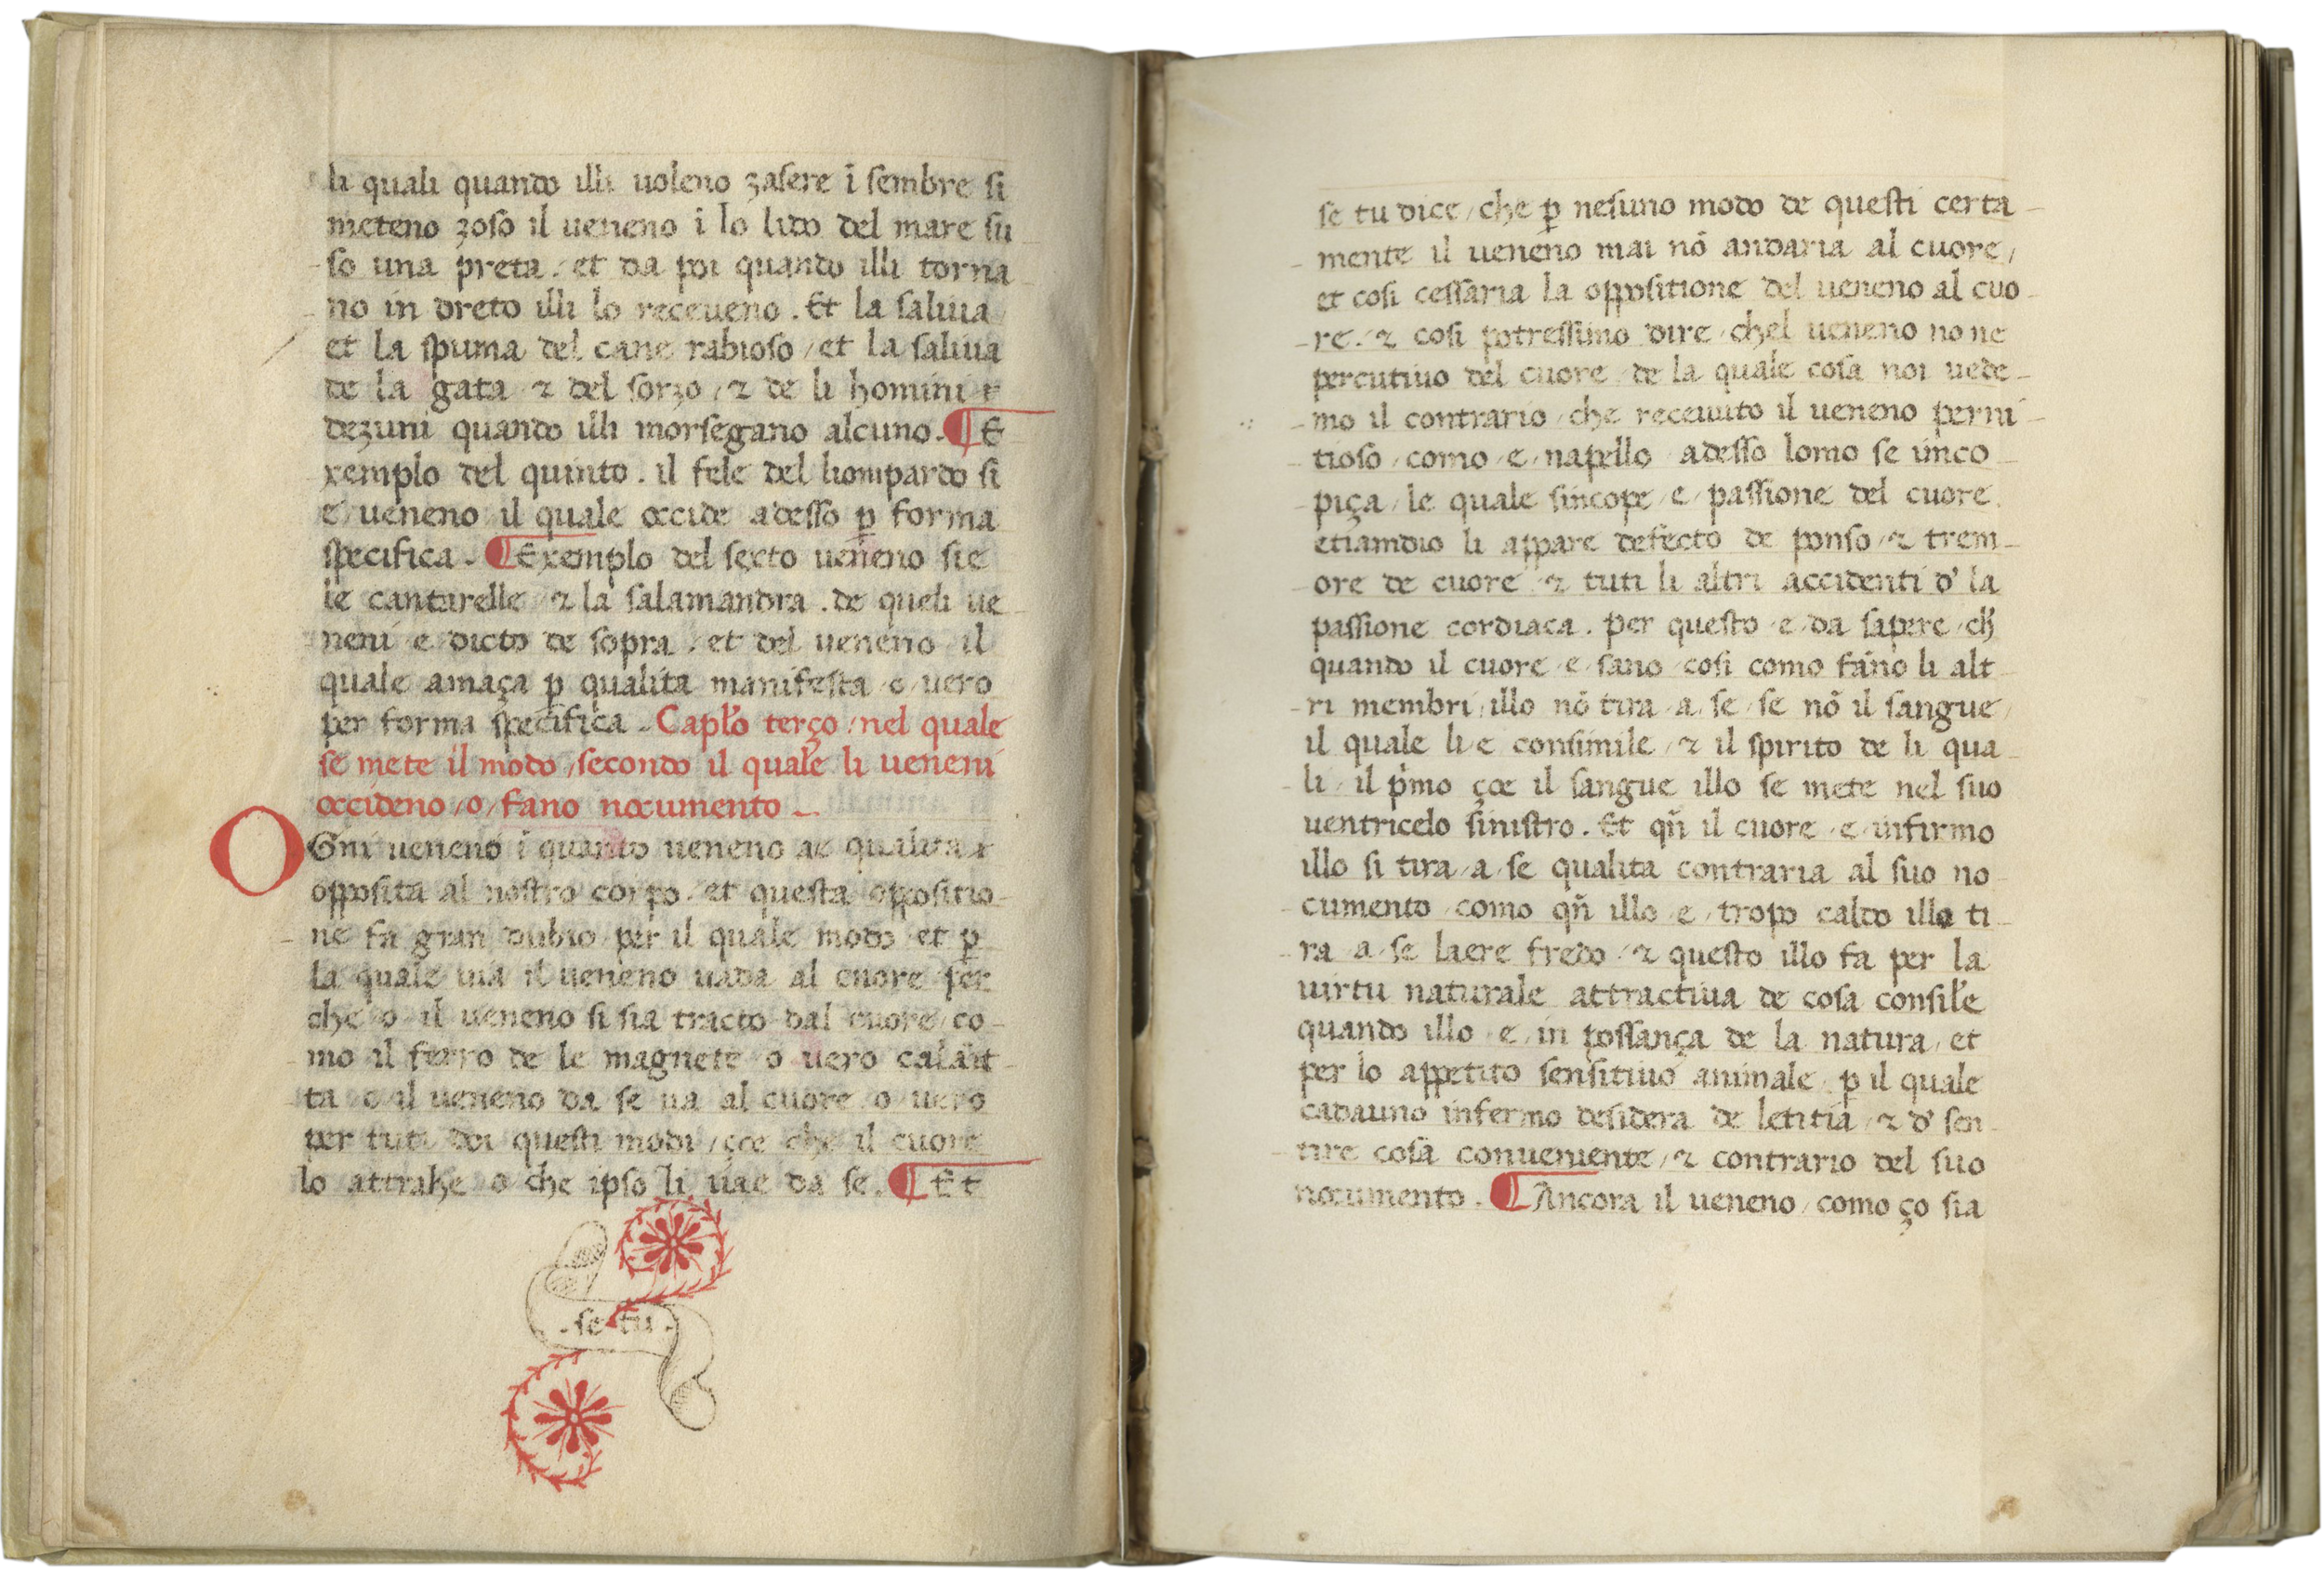 li quali quando illi uoleno zasere ī sembre si
meteno zoso il ueneno ī lo lido del mare su
so una preta / et da poi quando illi torna
no in dreto illi lo receueno . Et la saliua
et la spuma del cane rabioso / et la saliua
de la gata ⁊ del sorzo / ⁊ de li homini
dezuni quando illi morsegano alcuno . ¶ E
xemplo del quinto . il fele del liompardo si
e ueneno il quale occide adesso ꝑ forma
specifica . ¶ Exemplo del sexto ueneno sie
le cantarelle / ⁊ la salamandra . de queli ue
neni e dicto de sopra / et del ueneno il
quale amaça ꝑ qualita manifesta o uero
per forma specifica . Capło terço / nel quale
se mete il modo / secondo il quale li ueneni
occideno / o / fano nocumento .
OGni ueneno ī quanto ueneno ae qualita
opposita al nostro corpo / et questa oppositio
ne fa gran dubio / per il quale modo et ꝑ
la quale uia il ueneno uada al cuore per
che o il ueneno si sia tracto dal cuore / co
mo il ferro de le magnete o uero calāit
ta o il ueneno da se ua al cuore o uero
per tuti doi questi modi / çoe che il cuore
lo attrahe o che ipso li uae da se . ¶ Et
. se tu .
se tu dice / che ꝑ nesuno modo de questi certa
mente il ueneno mai nō andaria al cuore /
et cosi cessaria la oppositione del ueneno al cuo
re . ⁊ cosi potressimo dire / chel ueneno no ne
percutiuo del cuore / de la quale cosa noi uede
mo il contrario / che receuuto il ueneno perni
tioso / como / e / napello / adesso lomo se inco
piça / le quale sincope / e / passione del cuore .
etiamdio li appare defecto de ponso / ⁊ trem
ore de cuore / ⁊ tuti li altri accidenti d' la
passione cordiaca . per questo / e / da sapere / ch'
quando il cuore / e / sano / cosi como fano li alt
ri membri / illo nō tira / a / se / se nō il sangue /
il quale li e consimile / ⁊ il spirito de li qua
li / il pꝛmo çoe il sangue illo se mete nel suo
uentricelo sinistro . Et qn̄ il cuore / e / infirmo
illo si tira / a / se qualita contraria al suo no
cumento / como qn̄ illo / e / tropo caldo illo ti
ra / a / se laere fredo / ⁊ questo illo fa per la
uirtu naturale attractiua de cosa consiłe
quando illo / e / in possança de la natura / et
per lo appetito sensitiuo animale / ꝑ il quale
cadauno infermo desidera de letitia / ⁊ d' sen
tire cosa conueniente / ⁊ contrario del suo
nocumento . ¶ Ancora il ueneno / como ço sia